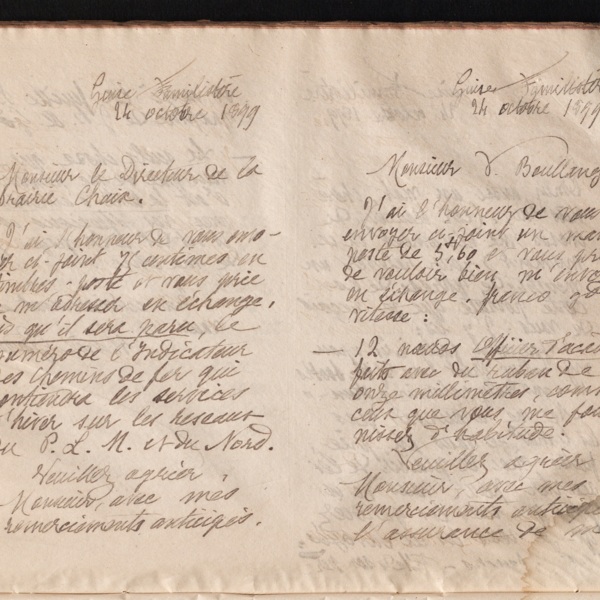 Guise Familistère
24 octobre 1899
Monsieur le Directeur de la
brairie Chaix.
J'ai l'honneur de vous envo-
yer ci-joint 75 centimes en
timbres-poste et vous prie
de m'adresser en échange,
dès qu'il sera paru, le
numéro de l'Indicateur
des chemins de fer qui
contiendra les services
d'hiver sur les réseaux
du P. L. M. et du Nord.
Veuillez agréer,
Monsieur, avec mes
remerciements anticipés.
Guise Familistère
24 octobre 1899
Monsieur V. Boullong
J'ai l'honneur de vou
envoyer ci-joint un man
poste de 5f,60 et vous pri
de vouloir bien m'envo
en échange, franco
vitesse :
— 12 nœuds Officier d'acad
faits avec du ruban de
onze millimètres, comm
ceux que vous me four
nissez d'habitude.
Veuillez agréer
Monsieur, avec mes
remerciements anticipés
l'assurance de me